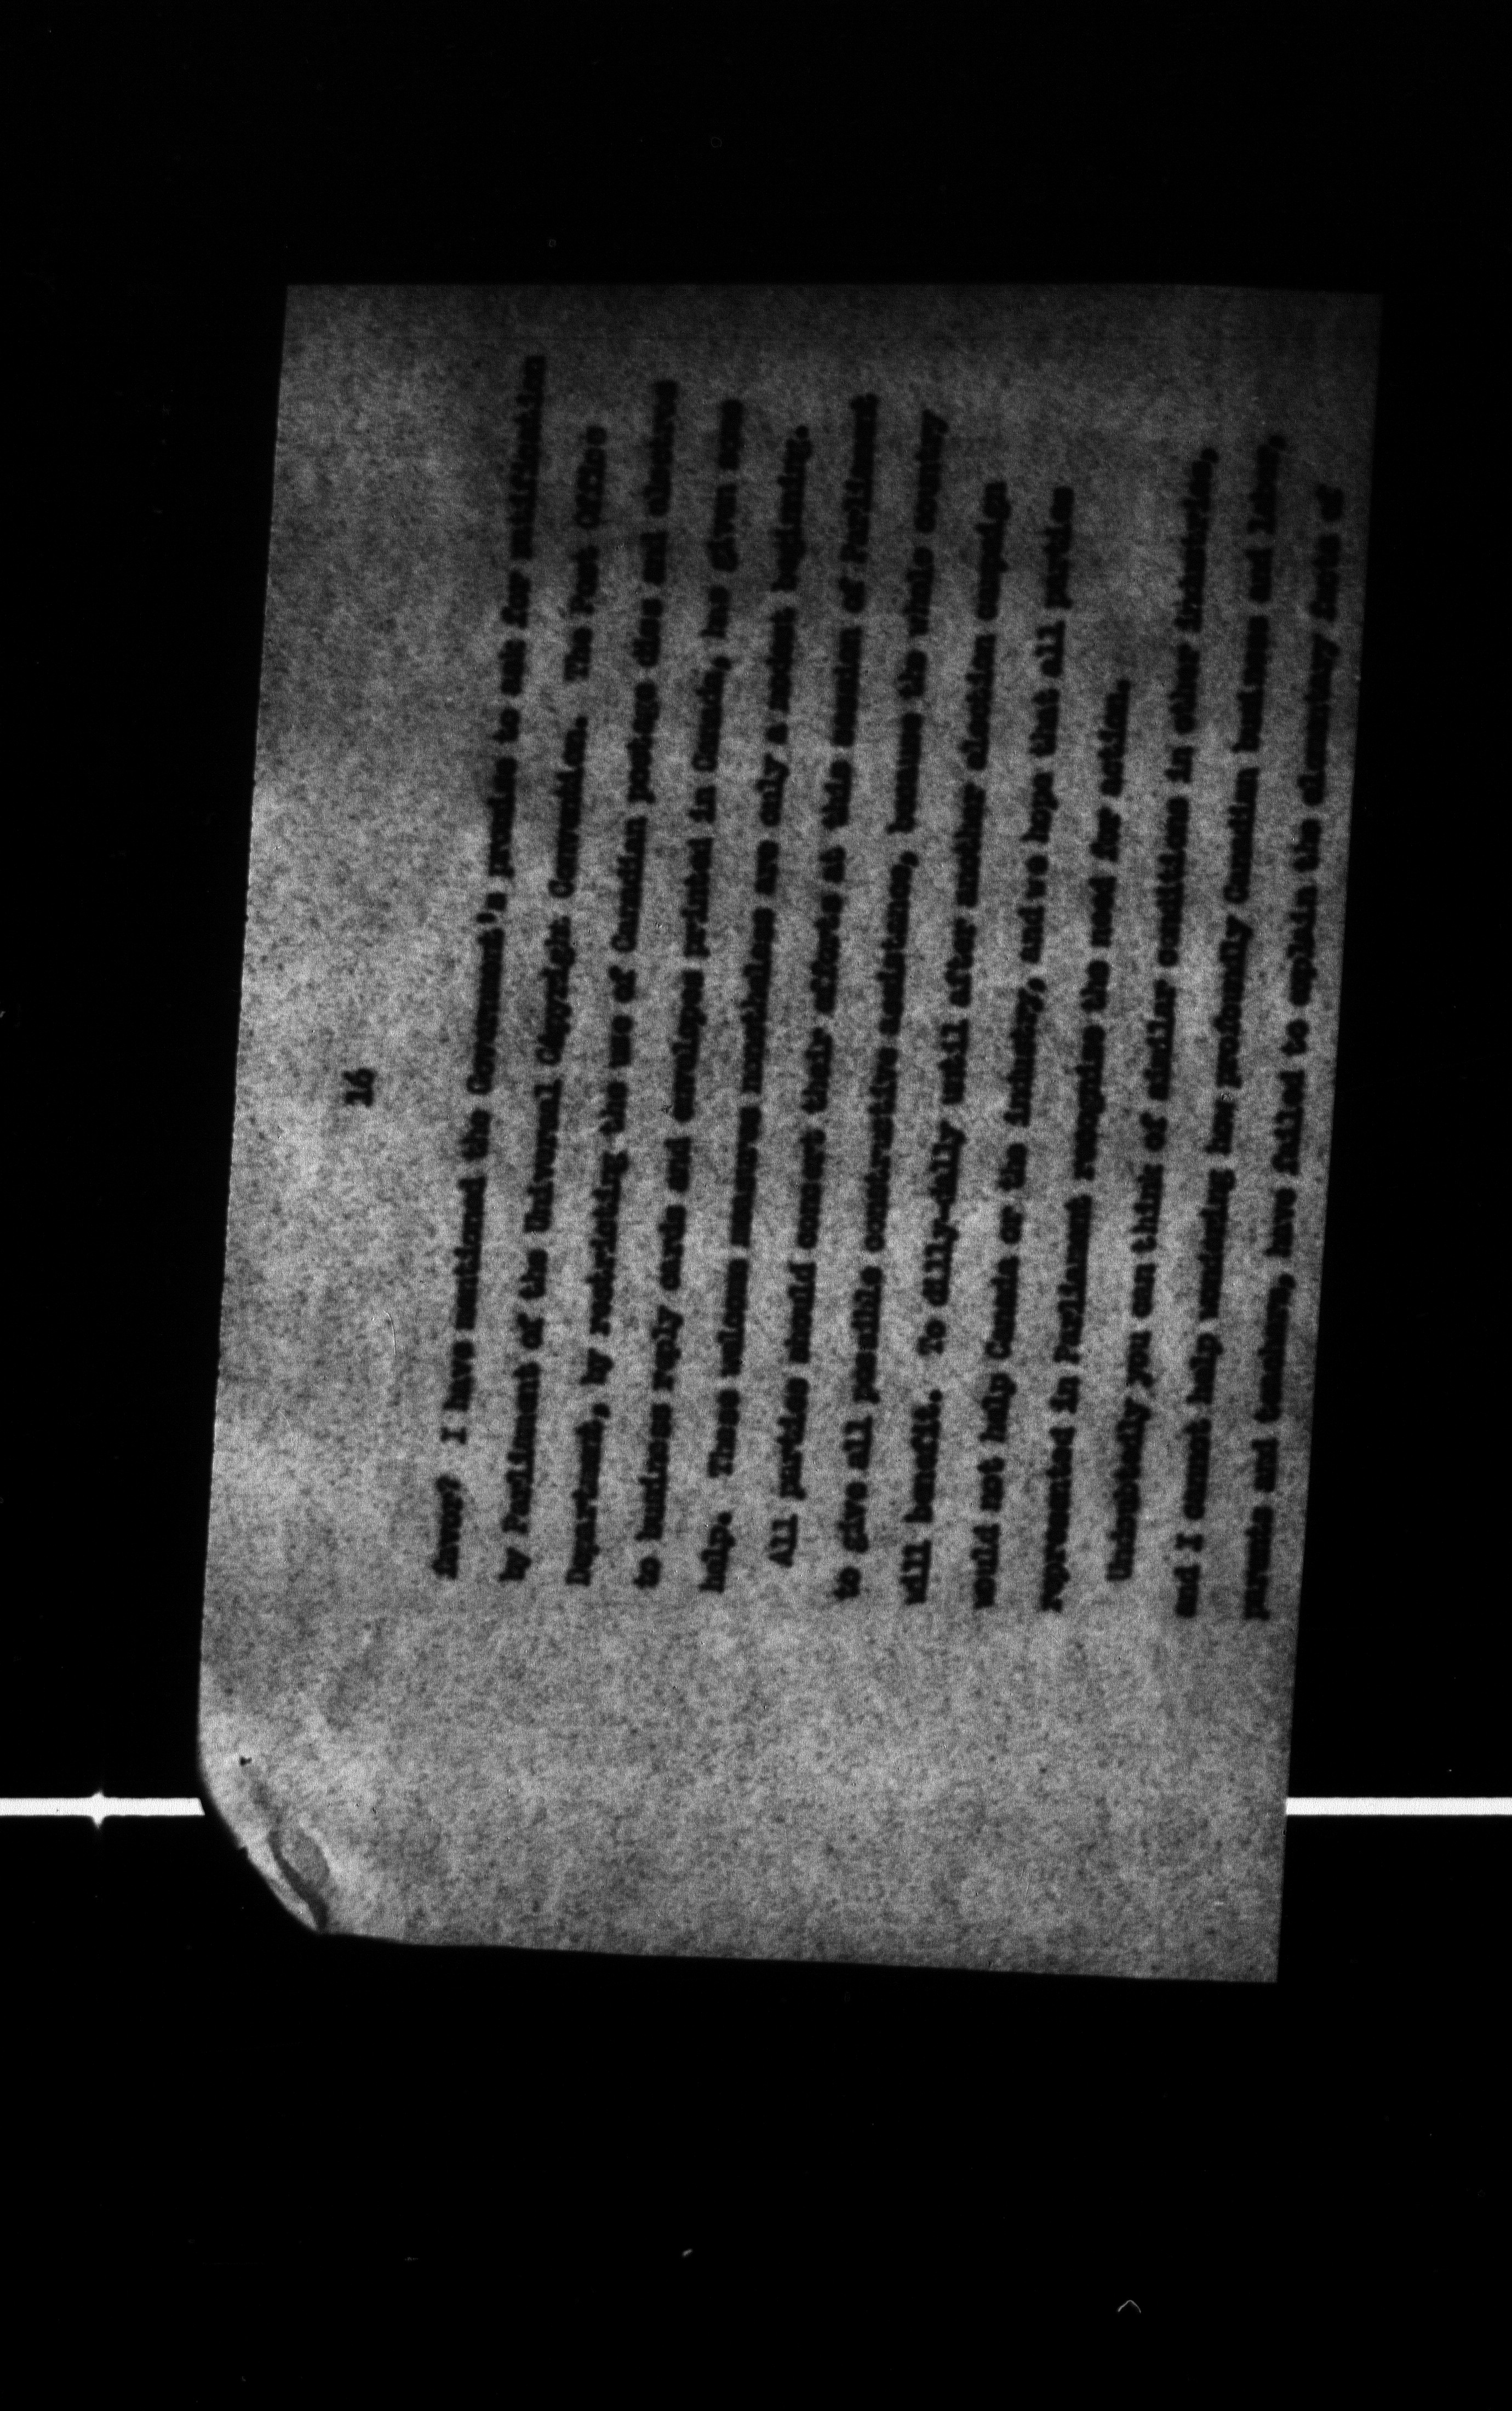 16
favor? I have mentioned the Government's promise to ask for ratification
by Parliament of the Universal Copyright Convention. The Post Office
Department, by restricting the use of Canadian postage dies and
to business reply cards and envelopes printed in Canada, has given some
help. These welcome measures nonetheless are only a modest beginning.
All parties should concert their efforts at this session of Parliament
to give all possible constructive assistance, because the whole country
will benefit. To dilly-dally until after another election campaign
would not help Canada or the industry, and we hope that all parties
represented in Parliament recognize the need for action.
Undoubtedly you can think of similar conditions in other industries,
and I cannot help wondering how profoundly Canadian business and labor,
parents and teachers, have failed to explain the elementary facts of